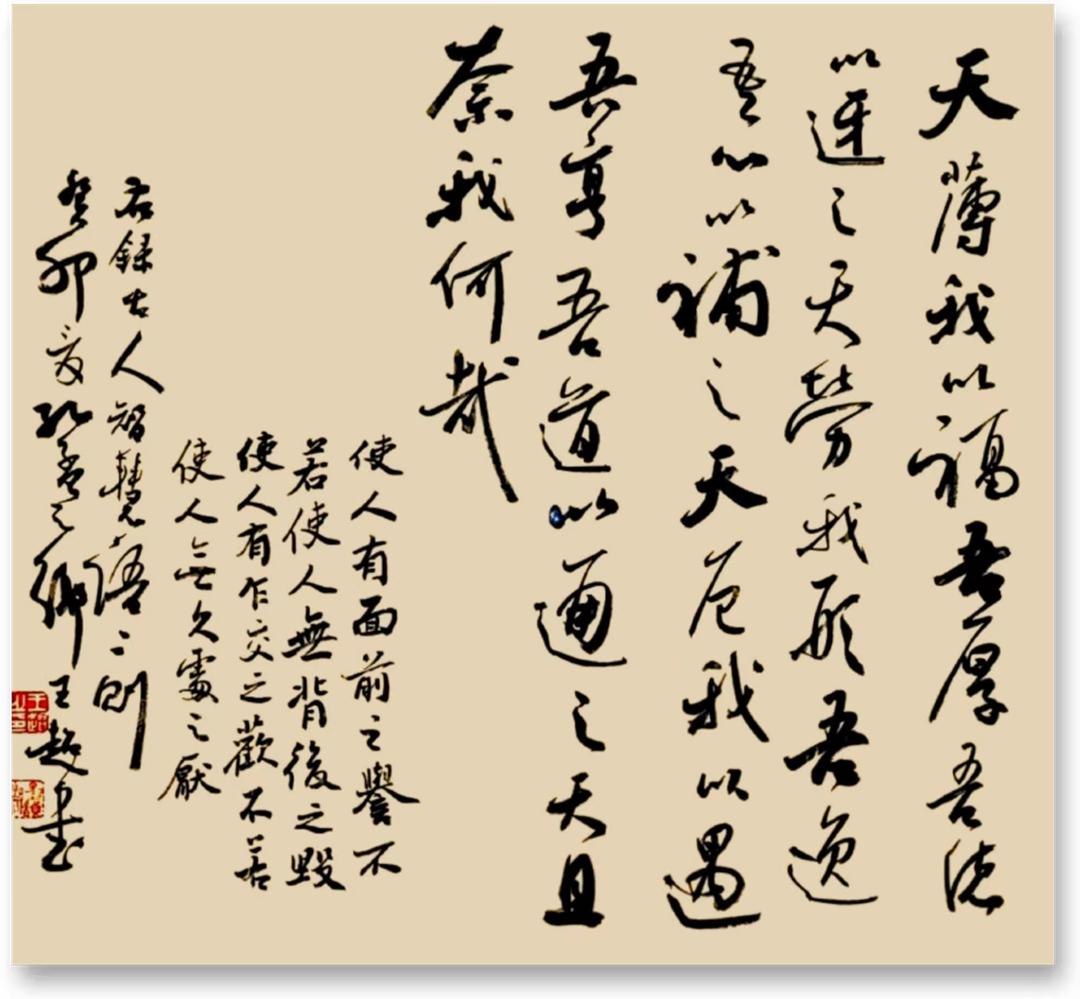 天薄我以福吾厚吾德
以迓之天勞我形吾逸
吾心以補之天厄我以遇
吾亨吾道以通之天且
奈我何哉
使人有面前之譽不
若使人無背後之毀
使人有乍交之歡不若
使人無久處之厭
右録古人智慧語二則
癸卯夏孔孟之鄉王超書